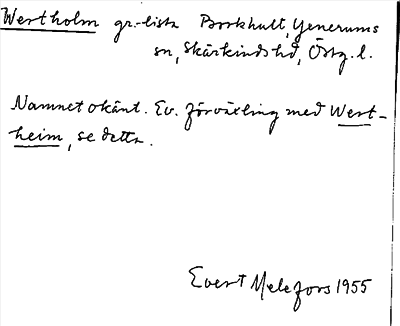 Westholm gr.-lista Borkhult, Yxnerums
sn, Skärkinds hd, Östg. l.
Namnet okänt. Ev. förväxling med West-
heim, se detta.
Evert Melefors 1955